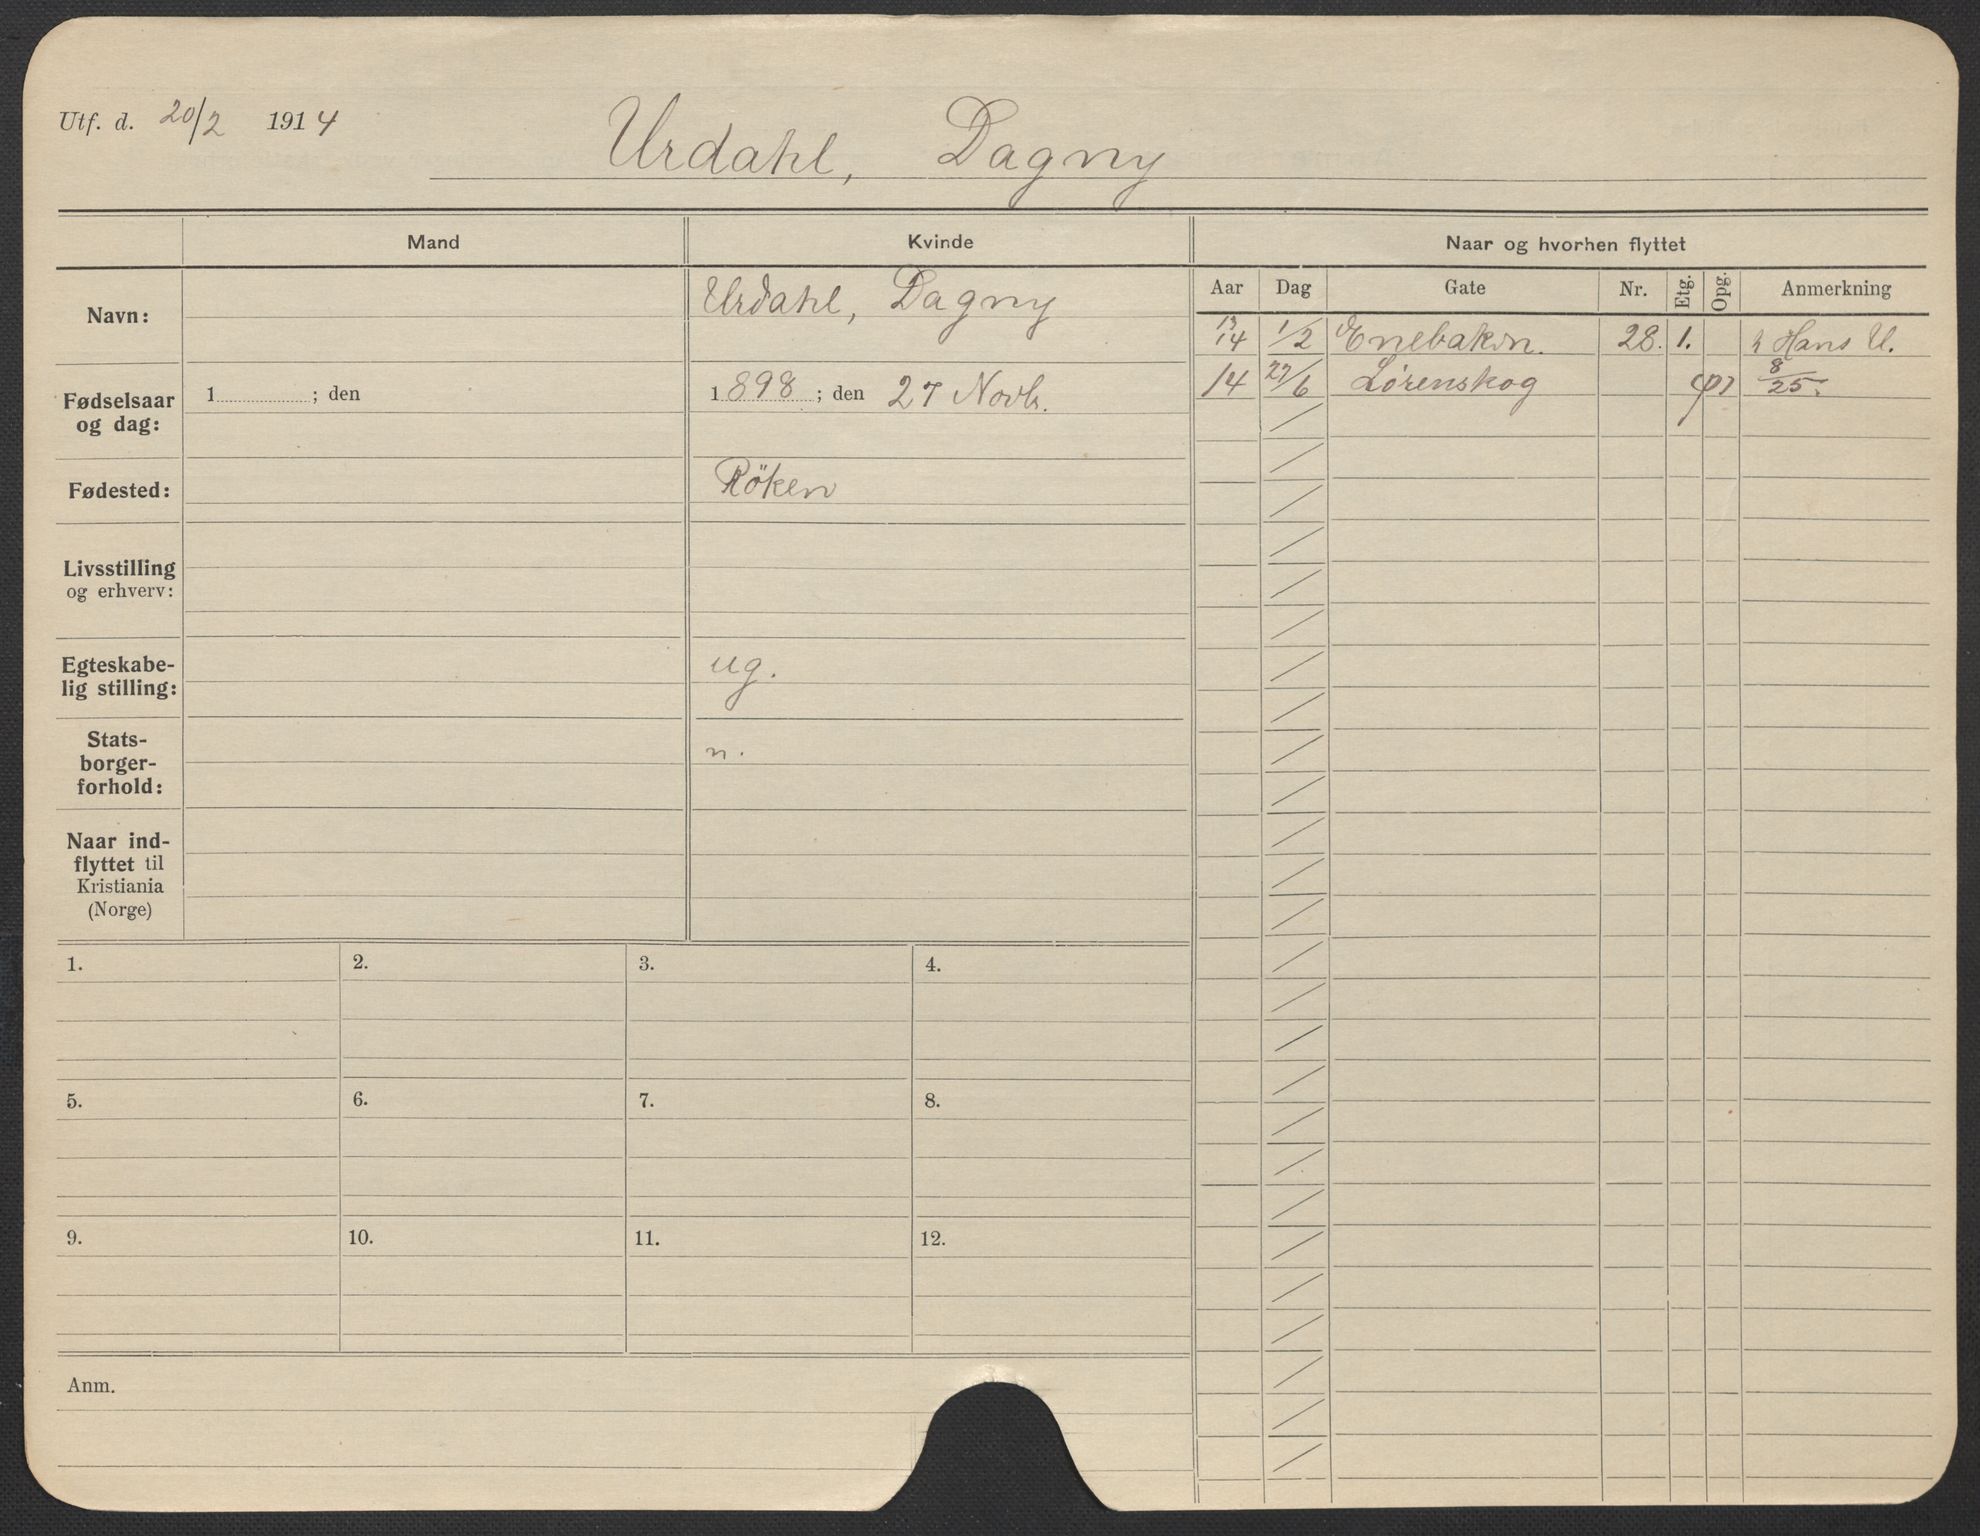 Utf. d. 20/2 1914
Urdahl, Dagny
Mand
Kvinde
Naar og hvorhen flyttet
Navn:
Urdahl, Dagny
Fødselsaar og dag:
1 ; den
1898 ; den 27 Novbr.
Fødested:
Röken
Livsstilling og erhverv:
Egteskabe-
lig stilling:
ug.
Stats-
borger-
forhold:
n.
Naar ind-
flyttet til
Kristiania
(Norge)
Aar Dag Gate Nr. Etg. Opg. Anmerkning
13
14 1/2 Enebakvn. 28. 1. Hans U.
14 27/6 Lørenskog 8/25
1. 2. 3. 4.
5. 6. 7. 8.
9. 10. 11. 12.
Anm.